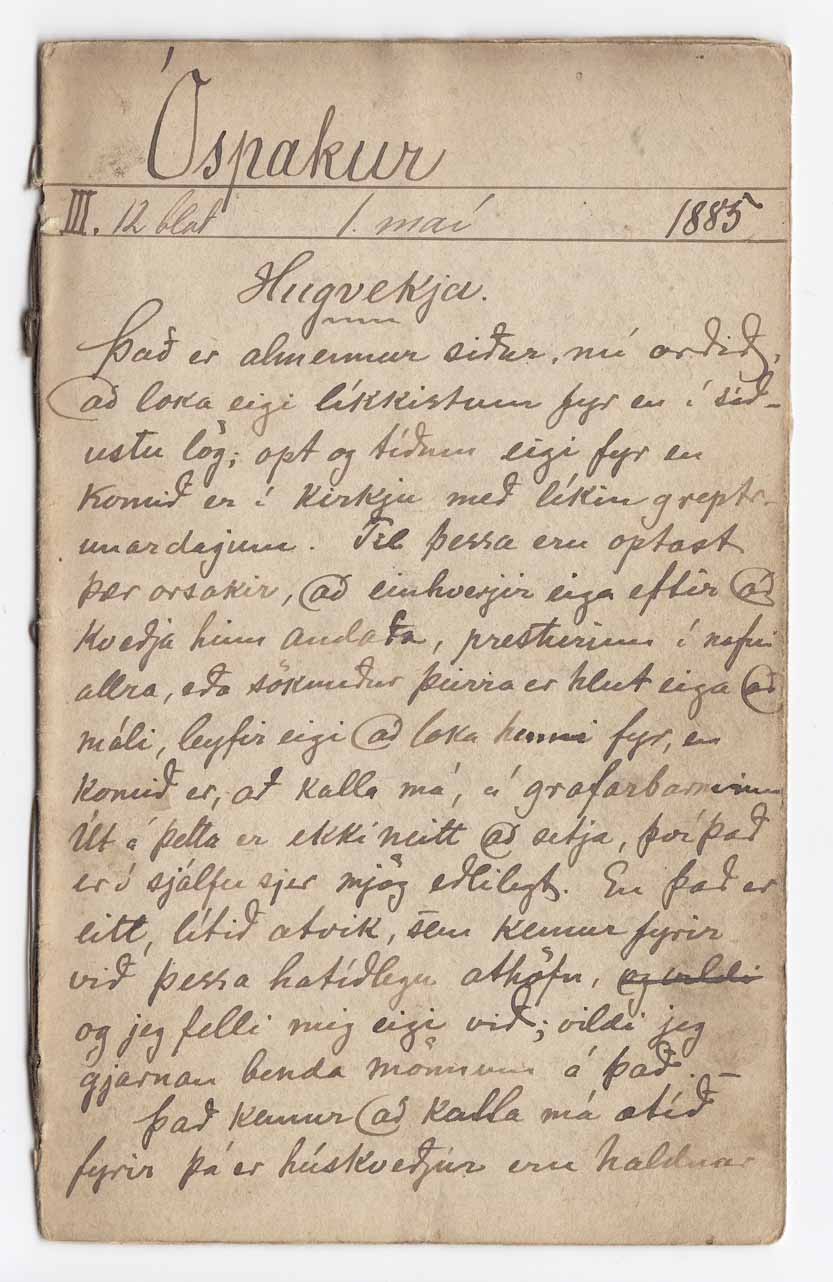 Óspakur
III. 12 blað 1. maí 1885
Hugvekja.
Það er almennur siður, nú orðið,
að loka eigi líkkistum fyr en í síð-
ustu lög; opt og tíðum eigi fyr en
komið er í kirkju með líkin greptr-
unardagum. Til þessa eru optast
þær orsakir, að einhverjir eiga eftir að
kveðja hinn andaða, presturinn í nafni
allra, eða söknuður þeirra er hlut eiga að
máli, leyfir eigi að loka henni fyr, en
komið er, að kalla má, á grafarbarminn
Út á þetta er ekki neitt að setja, því það
er í sjálfu sjer mjög eðlilegt. En það er
eitt, lítið atvik, sem kemur fyrir
við þessa hatíðlegu athöfn, og vildi
og jeg felli mig eigi við; vildi jeg
gjarnan benda mönnum á það. –
Það kemur að kalla má atíð
fyrir þá er húskveðjur eru haldnar